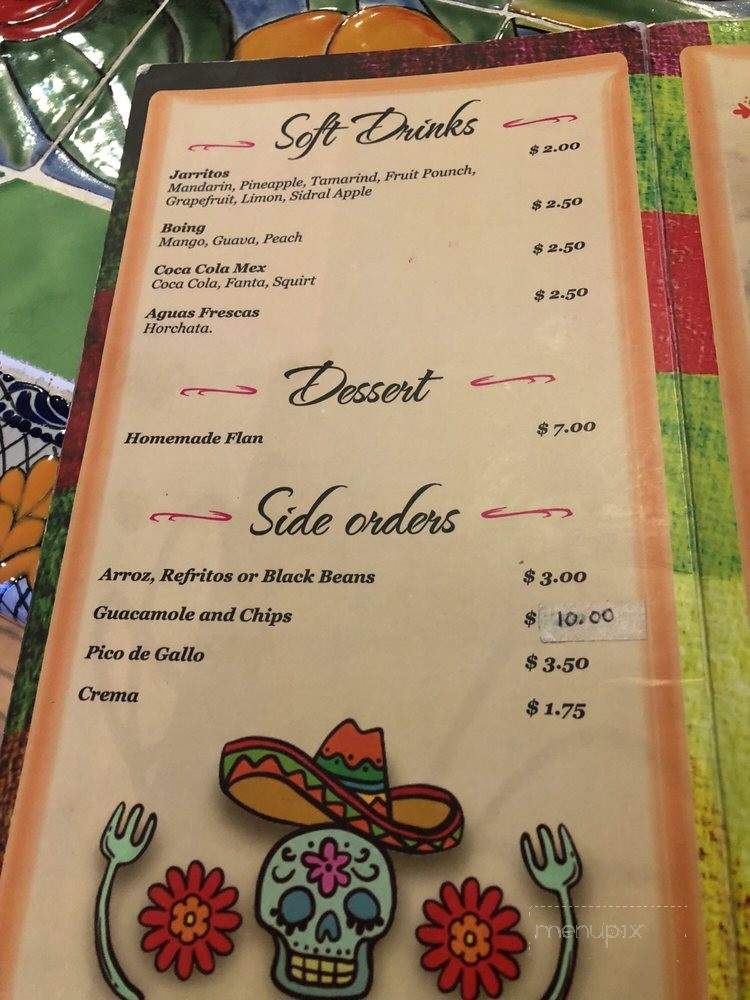 Soft Drinks
Jarritos $ 2.00
Mandarin, Pineapple, Tamarind, Fruit Pounch,
Grapefruit, Limon, Sidral Apple
Boing $ 2.50
Mango, Guava, Peach
Coca Cola Mex $ 2.50
Coca Cola, Fanta, Squirt
Aguas Frescas $ 2.50
Horchata.
Dessert
Homemade Flan $ 7.00
Side orders
Arroz, Refritos or Black Beans $ 3.00
Guacamole and Chips $ 10.00
Pico de Gallo $ 3.50
Crema $ 1.75
menupix